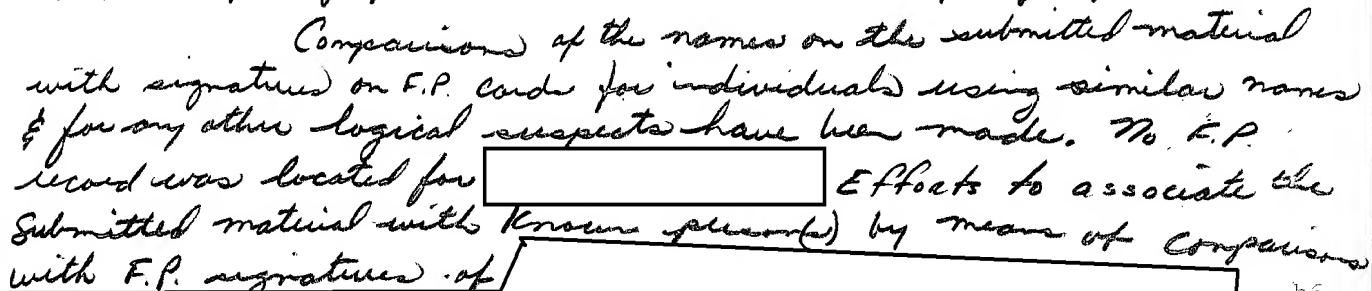 Comparisons of the names on the submitted material
with signatures on F.P. cards for individuals using similar names
& for any other logical suspects have been made. No F.P.
record was located for Efforts to associate the
Submitted material with Known person(s) by means of Comparisons
with F.P. signatures of